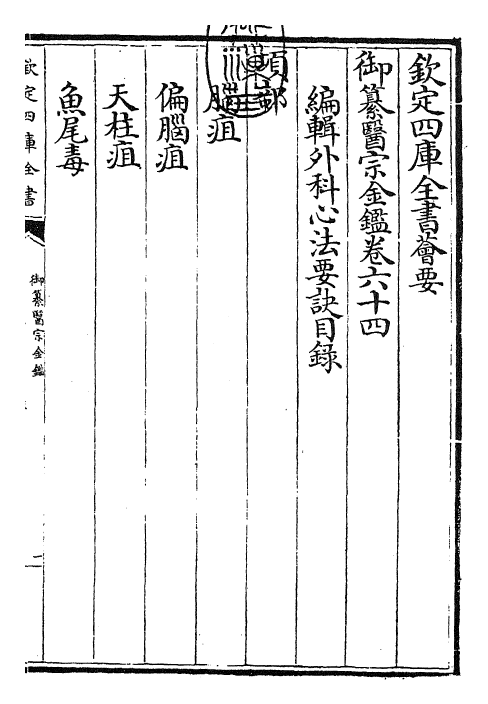 欽定四庫全書薈要
御纂醫宗金鑑卷六十四
編輯外科心法要訣目錄
項部
腦疽
偏腦疽
天柱疽
魚尾毒
欽定四庫全書
御纂醫宗金鑑
二